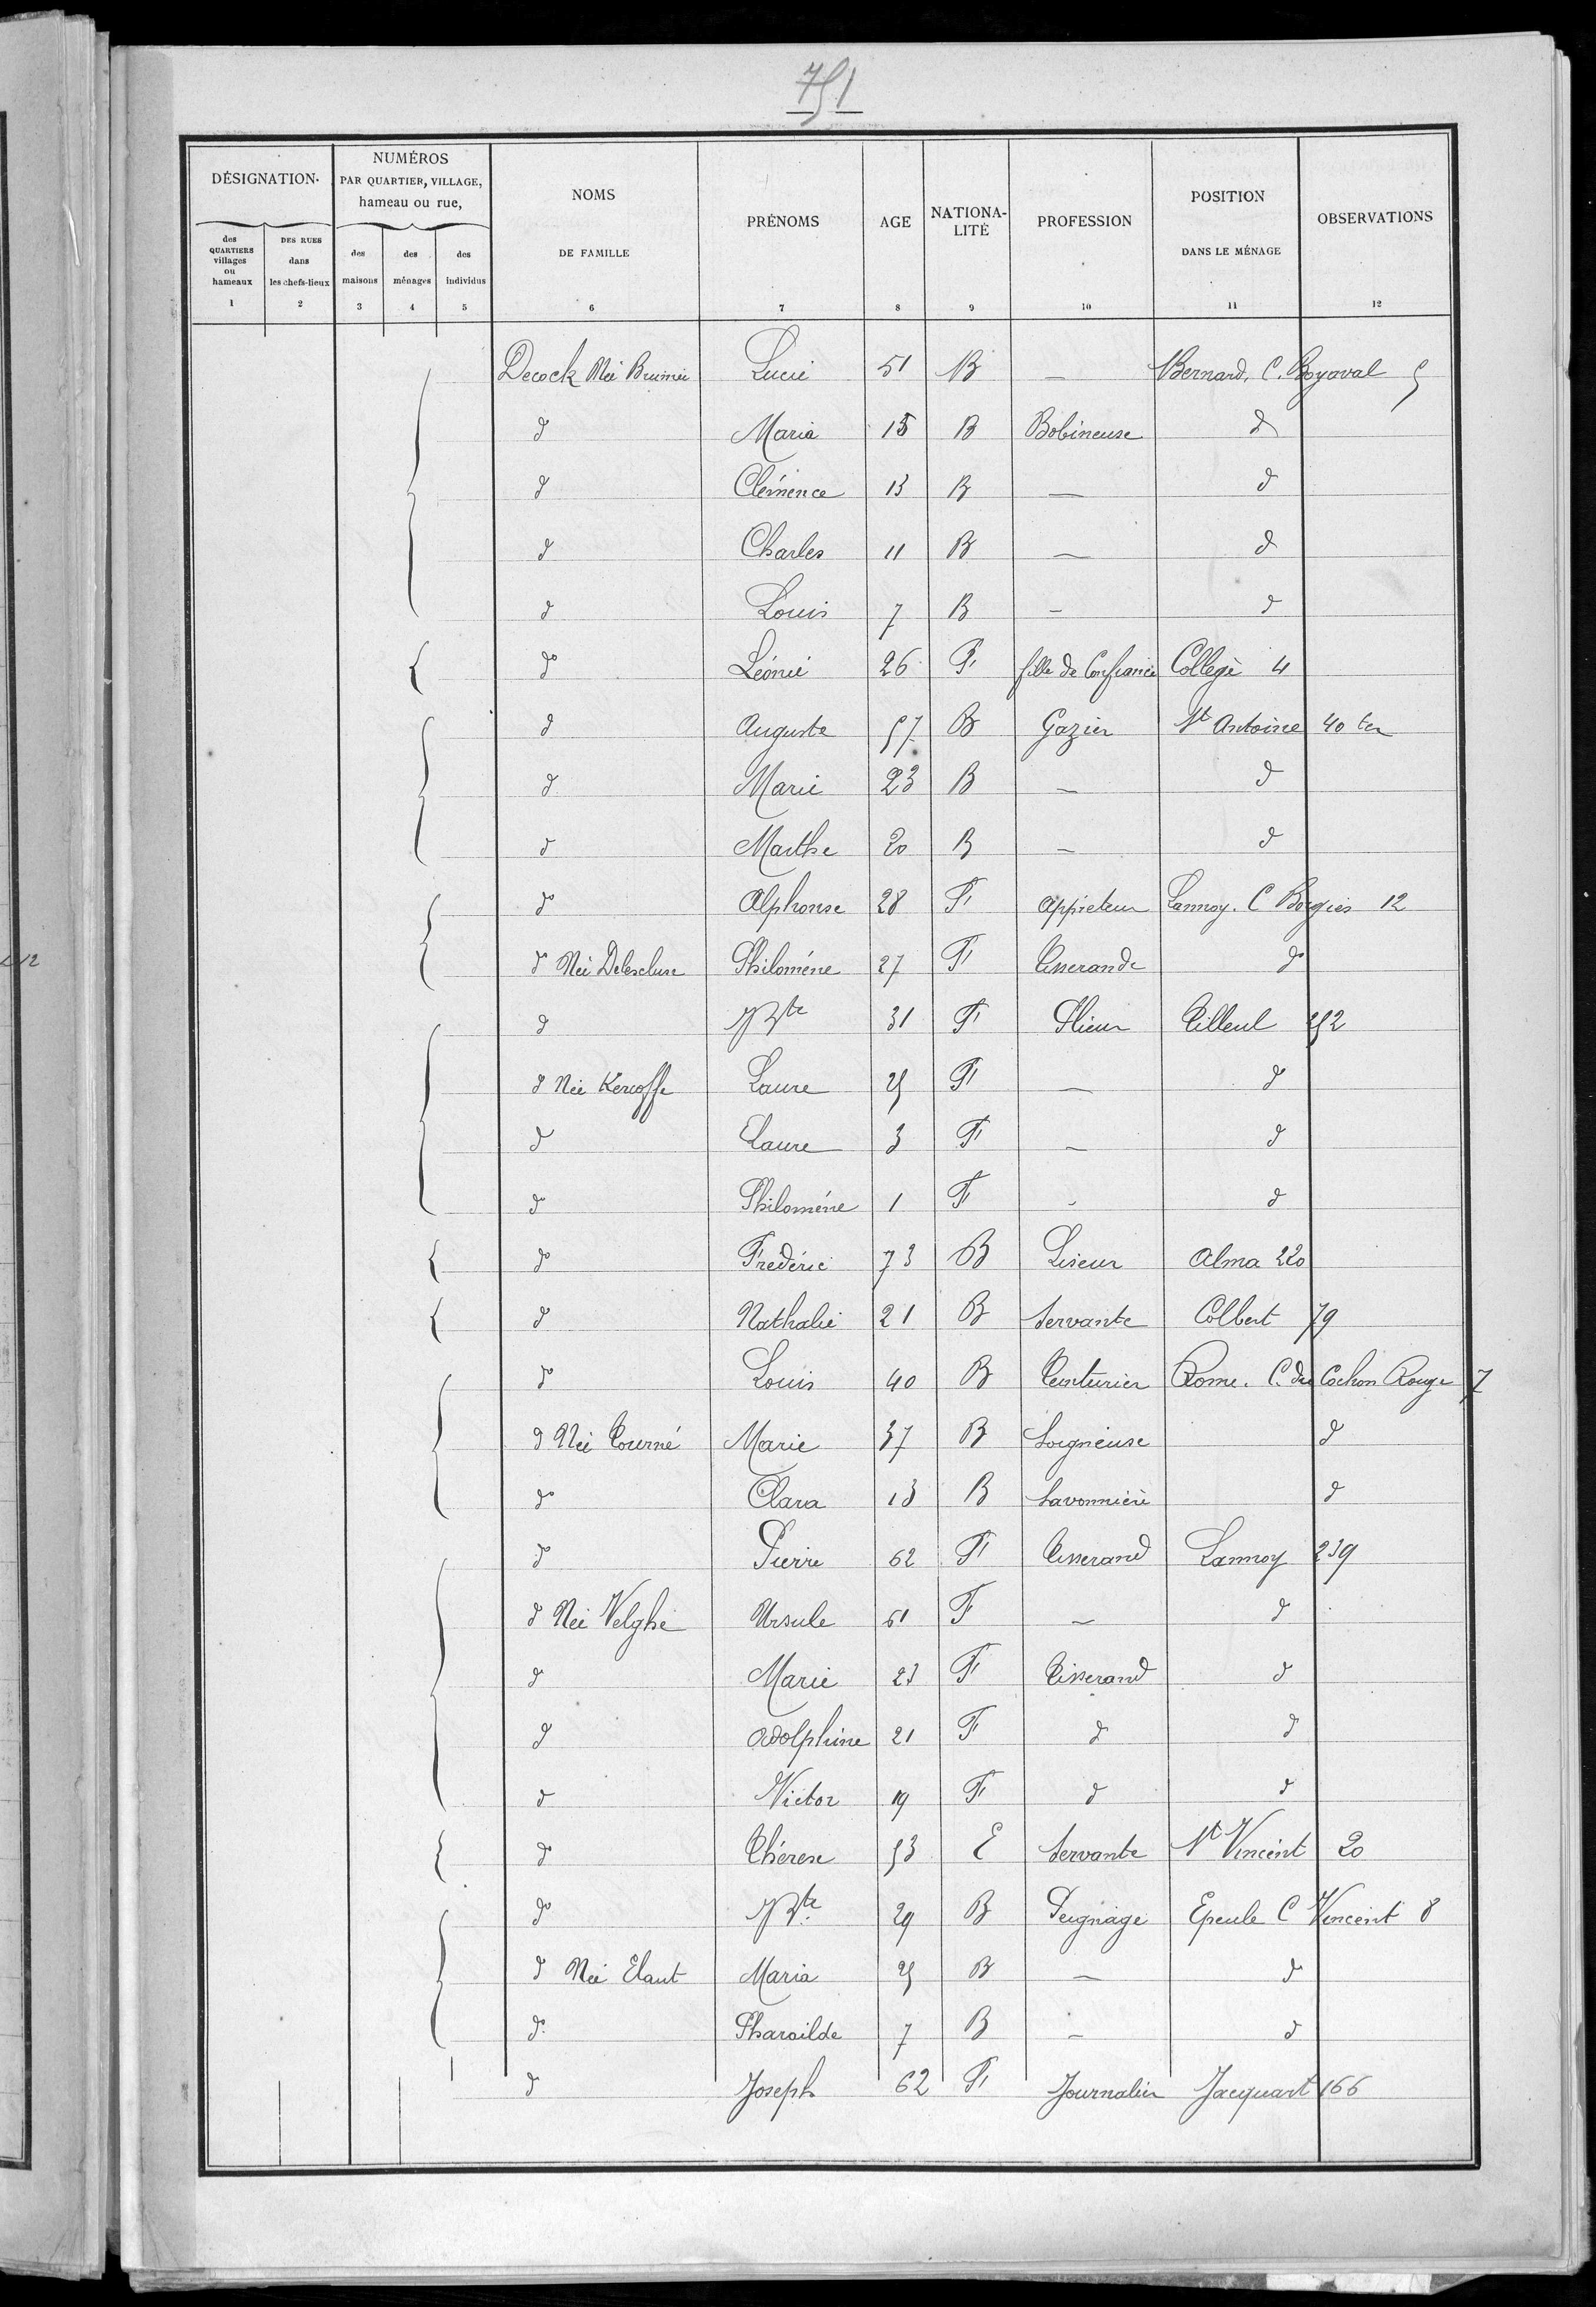 751
DÉSIGNATION.
NUMÉROS
PAR QUARTIER, VILLAGE,
hameau ou rue,
NOMS
DE FAMILLE
PRÉNOMS
AGE
NATIONA-
LITÉ
PROFESSION
POSITION
DANS LE MÉNAGE
OBSERVATIONS
des
QUARTIERS
villages
ou
hameaux
DES RUES
dans
les chefs-lieux
des
maisons
des
ménages
des
individus
1 2 3 4 5 6 7 8 9 10 11 12
Decock Née Lucie 51 B — Bernard. C. Boyaval 5
d Maria 15 B Bobineuse d
d Clémence 13 B — d
d Charles 11 B — d
d Louis 7 B — d
d° Léonie 26 F fille de Confiance Collège 4
d Auguste 57 B Gazier St Antoine 40 ter
d Marie 23 B — d
d Marthe 20 B — d
d° Alphonse 28 F Apprêteur Lannoy. C 12
d° Née Delescluse Philomène 27 F Tisserande d°
d JBte 31 F Plieur Tilleul 252
d Née Kercoffe Laure 25 F — d°
d Laure 3 F — d
d° Philomène 1 F - d
d° Frédéric 73 B Liseur Alma 220
d Nathalie 21 B Servante Colbert 79
d° Louis 40 B Teinturier Rome. C. du Cochon Rouge 7
d Née Tourné Marie 37 B Soigneuse d
d° Clara 13 B Savonnière d
d° Pierre 62 F Tisserand Lannoy 239
d Née Velghe Ursule 61 F — d
d Marie 23 F Tisserand d
d Adolphine 21 F d d
d Victor 19 F d d
d° Thérèse 53 E Servante St Vincent 20
d° JBte 29 B Peignage Epeule C Vincent 8
d Née Elaut Maria 25 B — d°
d° Pharaïlde 7 B — d
d Joseph 62 F Journalier Jacquart 166